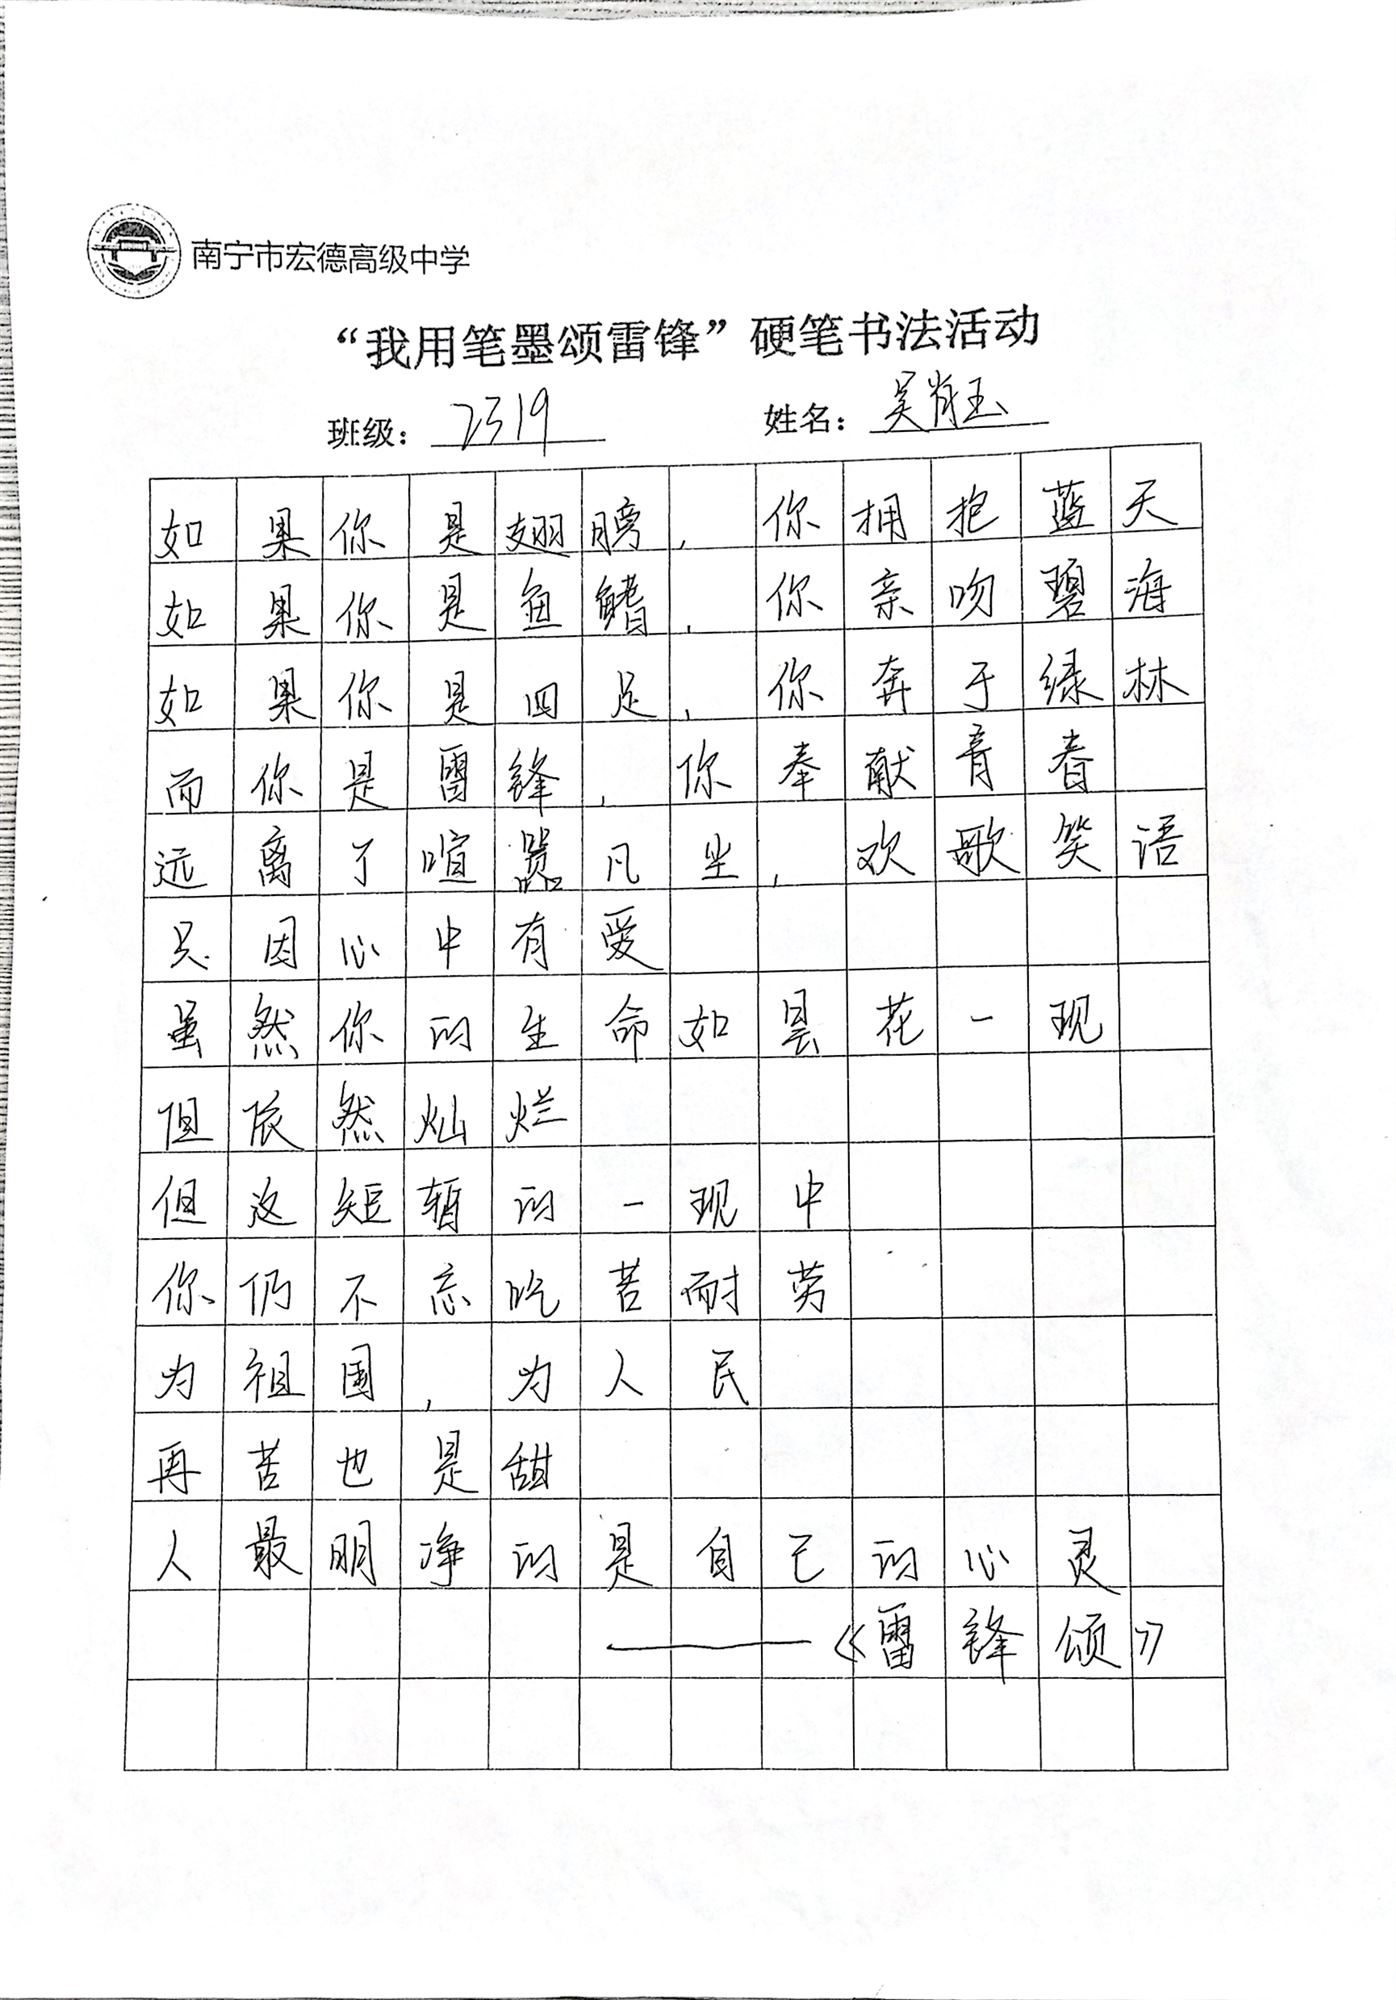 南宁市宏德高级中学
“我用笔墨颂雷锋”硬笔书法活动
班级：2319 姓名：吴肖玉
如果你是翅膀，你拥抱蓝天
如果你是鱼鳍，你亲吻碧海
如果你是四足，你奔于绿林
而你是雷锋，你奉献青春
远离了喧嚣凡尘，欢歌笑语
只因心中有爱
虽然你的生命如昙花一现
但依然灿烂
但这短暂的一现中
你仍不忘吃苦耐劳
为祖国，为人民
再苦也是甜
人最明净的是自己的心灵
——《雷锋颂》